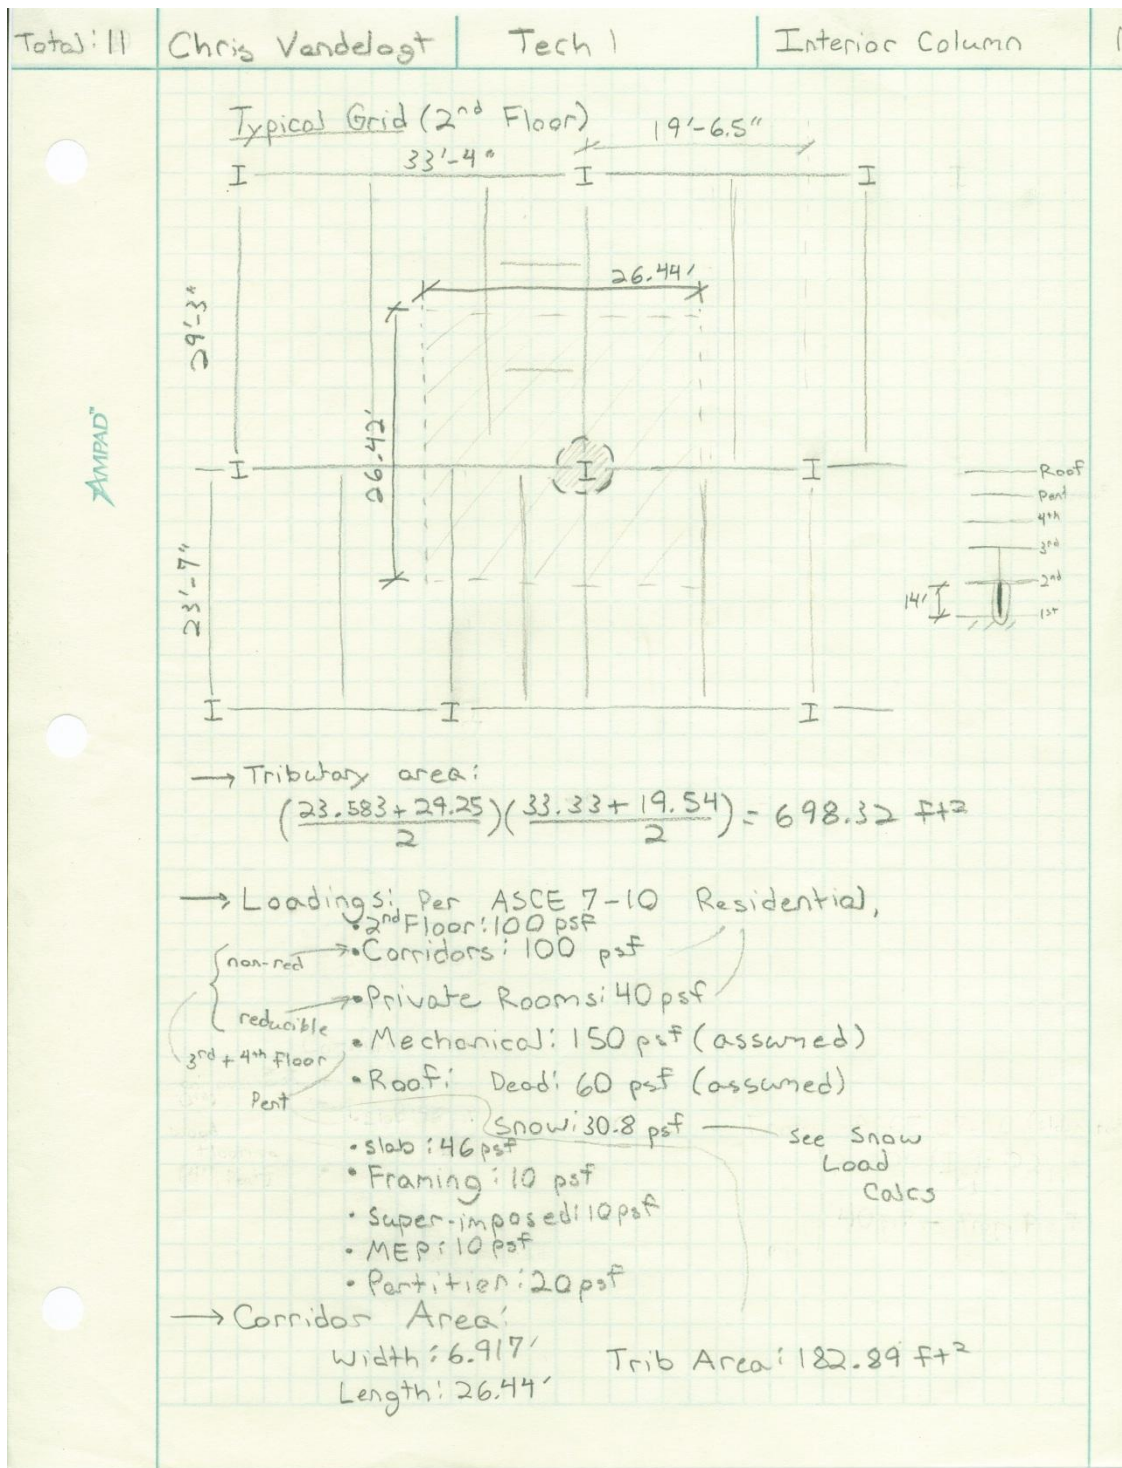 Total: 11
Chris Vandelogt
Tech 1
Interior Column
Typical Grid (2nd Floor)
19'-6.5"
33'-4"
I I I
26.44'
29'-3"
26.42'
AMPAD™
I I I
Roof
Pent
4th
3rd
2nd
1st
14'
23'-7"
I I I
→ Tributary area:
(23.583+29.25/2)(33.33+19.54/2) = 698.32 ft²
→ Loadings: Per ASCE 7-10 Residential,
• 2nd Floor: 100 psf
non-red
• Corridors: 100 psf
reducible
• Private Rooms: 40 psf
3rd + 4th Floor
• Mechanical: 150 psf (assumed)
Pent
• Roof: Dead: 60 psf (assumed)
Snow: 30.8 psf — see Snow
Load
Calcs
• slab: 46 psf
• Framing: 10 psf
• Super-imposed: 10 psf
• MEP: 10 psf
• Partition: 20 psf
→ Corridor Area:
Width: 6.917'
Length: 26.44'
Trib Area: 182.89 ft²